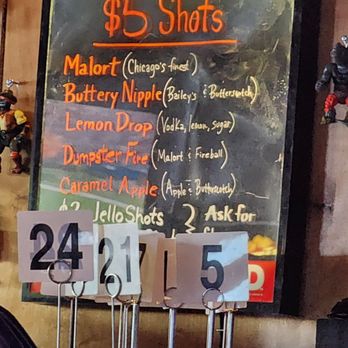 $5 Shots
Malort (Chicago's finest)
Buttery Nipple (Bailey's & Butterscotch)
Lemon Drop (Vodka, lemon, sugar)
Dumpster Fire (Malort & Fireball)
Caramel Apple (Apple & Butterscotch)
$2 Jello Shots } Ask for
24
21
5